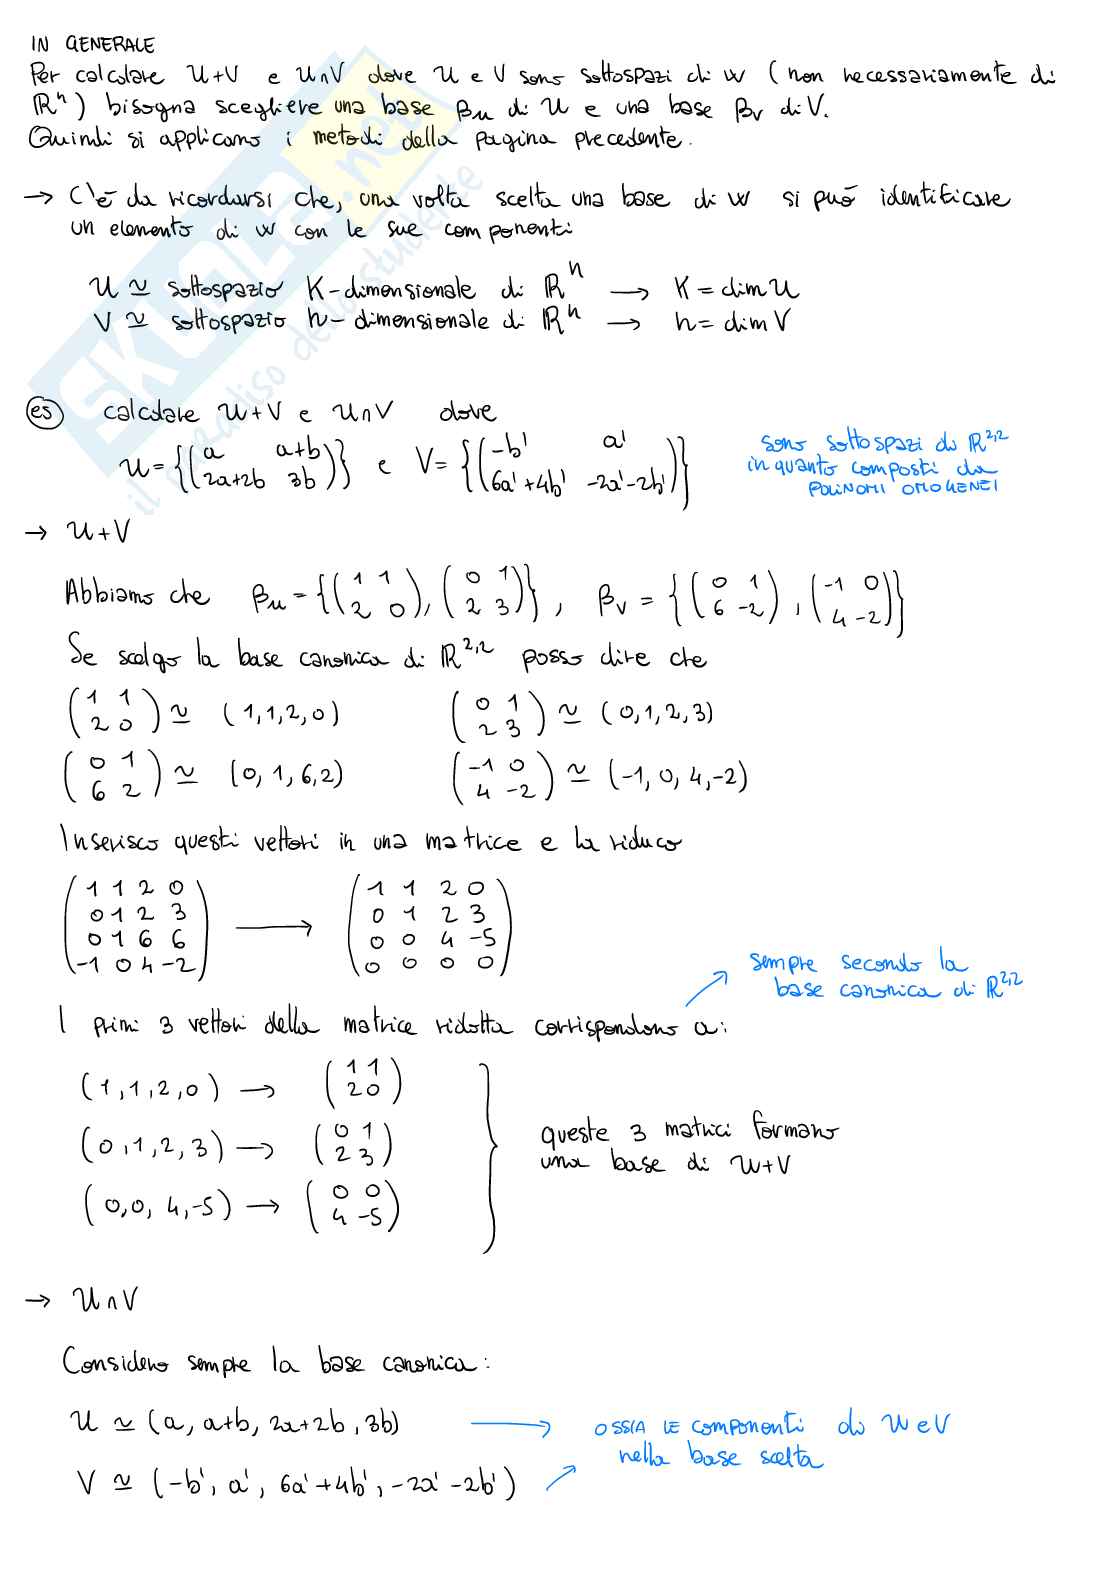 IN GENERALE
Per calcolare U+V e U∩V dove U e V sono sottospazi di W (non necessariamente di
ℝⁿ) bisogna scegliere una base βu di U e una base βv di V.
Quindi si applicano i metodi della pagina precedente.
→ C'è da ricordarsi che, una volta scelta una base di W si può identificare
un elemento di W con le sue componenti
U ≃ sottospazio K-dimensionale di ℝⁿ → K = dim U
V ≃ sottospazio h-dimensionale di ℝⁿ → h = dim V
es calcolare U+V e U∩V dove
U = {(a a+b; 2a+2b 3b)} e V = {(-b' a'; 6a'+4b' -2a'-2b')}
sono sottospazi di ℝ²,²
in quanto composti da
POLINOMI OMOGENEI
→ U+V
Abbiamo che βu = {(1 1; 2 0), (0 1; 2 3)}, βv = {(0 1; 6 -2), (-1 0; 4 -2)}
Se scelgo la base canonica di ℝ²,² posso dire che
(1 1; 2 0) ≃ (1,1,2,0) (0 1; 2 3) ≃ (0,1,2,3)
(0 1; 6 2) ≃ (0,1,6,2) (-1 0; 4 -2) ≃ (-1,0,4,-2)
Inserisco questi vettori in una matrice e la riduco
(1 1 2 0 (1 1 2 0
0 1 2 3 → 0 1 2 3
0 1 6 6 0 0 4 -5
-1 0 4 -2) 0 0 0 0)
sempre secondo la
base canonica di ℝ²,²
I primi 3 vettori della matrice ridotta corrispondono a:
(1,1,2,0) → (1 1; 2 0)
(0,1,2,3) → (0 1; 2 3)
(0,0,4,-5) → (0 0; 4 -5)
queste 3 matrici formano
una base di U+V
→ U∩V
Considero sempre la base canonica:
U ≃ (a, a+b, 2a+2b, 3b) →
V ≃ (-b', a', 6a'+4b', -2a'-2b')
OSSIA LE componenti di U e V
nella base scelta
SKUOLA.net
il paradiso dello studente